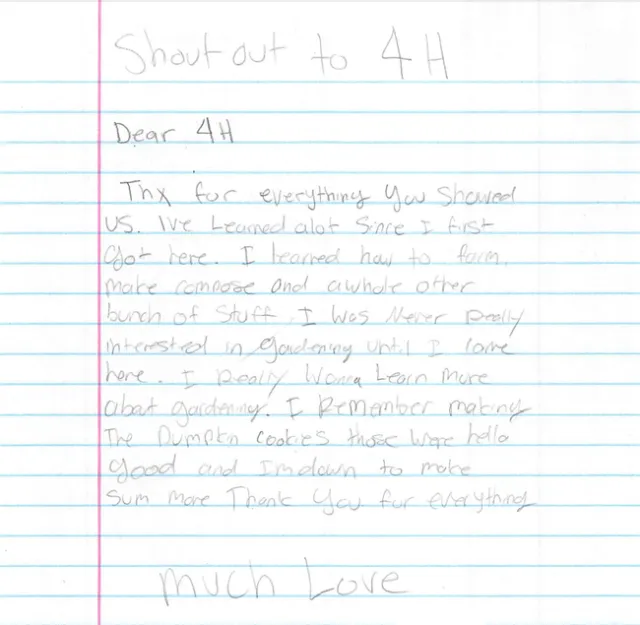 Shout out to 4H
Dear 4H
Thx for everything you showed
us. Ive Learned alot Since I first
got here. I learned how to farm,
make compose and awhole other
bunch of stuff. I was Never Really
interested in gardening until I came
here. I Really Wanna Learn more
about gardening. I Remember making
The Pumpkn cookies those were hella
good and Im down to make
sum more Thank You for everything
much Love